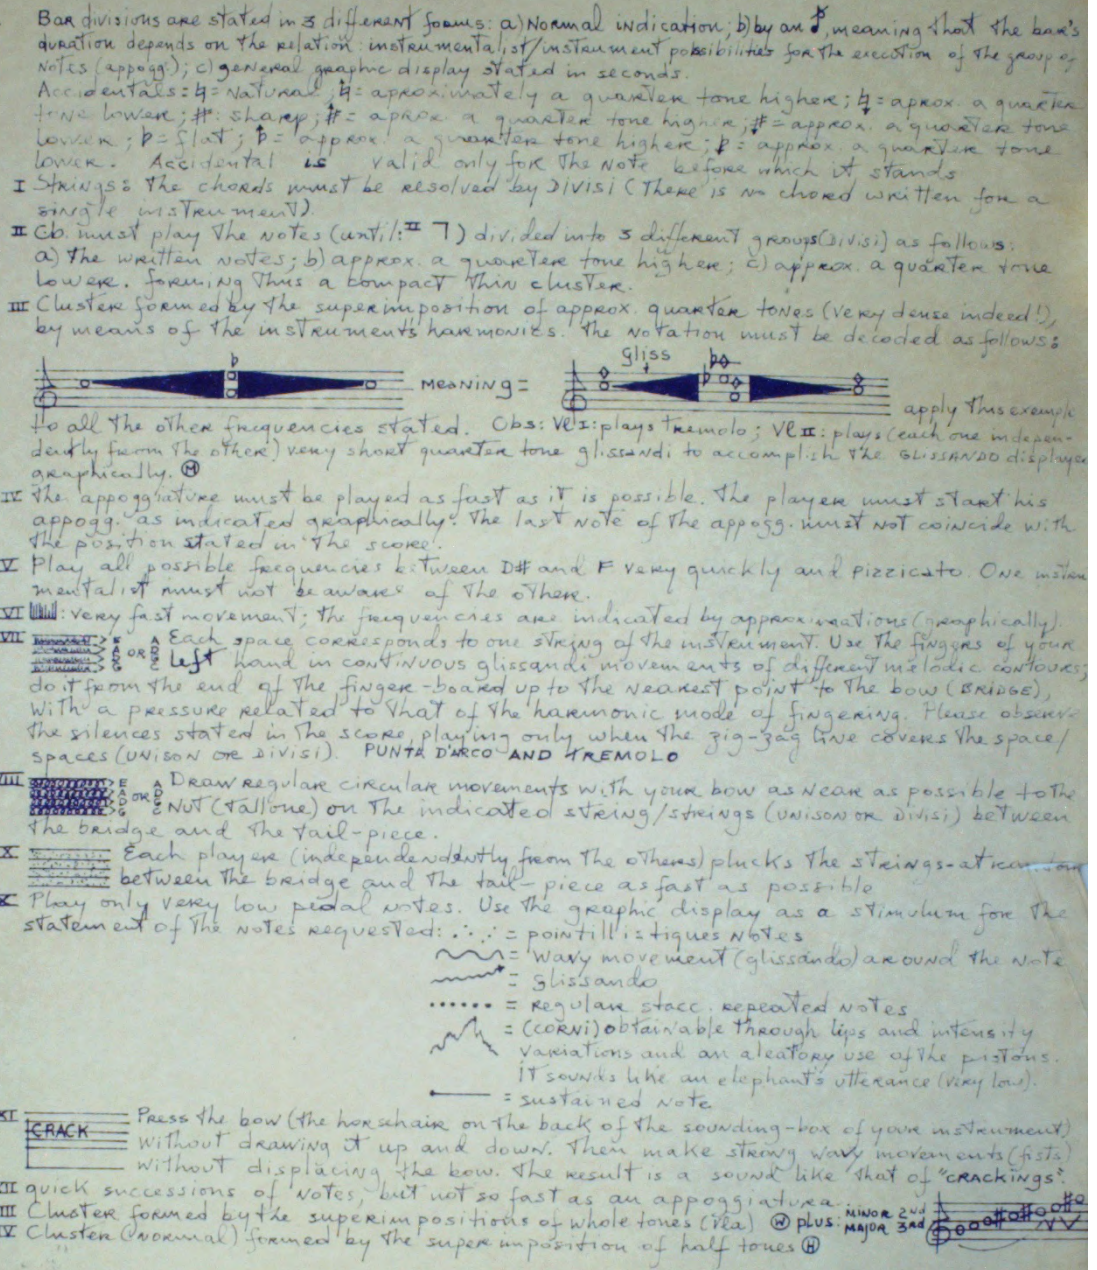 Bar divisions are stated in 3 different forms: a) Normal indication; b) by an ♪, meaning that the bar's
duration depends on the relation: instrumentalist/instrument possibilities for the execution of the group of
notes (appogg.); c) general graphic display stated in seconds.
Accidentals: ♮ = natural; ♮ = aproximately a quarter tone higher; ♮ = aprox. a quarter
tone lower; #: sharp; # = aprox. a quarter tone higher; # = approx. a quarter tone
lower; ♭ = flat; ♭ = approx. a quarter tone higher; ♭ = approx. a quarter tone
lower. Accidental is valid only for the note before which it stands
I Strings: the chords must be resolved by Divisi (there is no chord written for a
single instrument).
II Cb. must play the notes (until: II ⌉) divided into 3 different groups (Divisi) as follows:
a) the written notes; b) approx. a quarter tone higher; c) approx. a quarter tone
lower. forming thus a compact thin cluster.
III Cluster formed by the superimposition of approx. quarter tones (very dense indeed!),
by means of the instruments' harmonics. The notation must be decoded as follows:
gliss
meaning =
apply this example
to all the other frequencies stated. Obs: Vl I: plays tremolo; Vl II: plays (each one indepen-
dently from the other) very short quarter tone glissandi to accomplish the GLISSANDO displayed
graphically. Ⓗ
IV The appoggiature must be played as fast as it is possible. The player must start his
appogg. as indicated graphically. The last note of the appogg. must not coincide with
the position stated in the score.
V Play all possible frequencies between D# and F very quickly and pizzicato. One instru
mentalist must not be aware of the other.
VI : very fast movement; the frequencies are indicated by approximations (graphically).
VII E A D G OR A D G C Each space corresponds to one string of the instrument. Use the fingers of your
left hand in continuous glissandi movements of different melodic contours;
do it from the end of the finger-board up to the nearest point to the bow (BRIDGE),
with a pressure related to that of the harmonic mode of fingering. Please observe
the silences stated in the score, playing only when the zig-zag line covers the space/
spaces (unison or Divisi). PUNTA D'ARCO AND TREMOLO
VIII E A D G OR A D G C Draw regular circular movements with your bow as near as possible to the
Nut (tallone) on the indicated string/strings (unison or Divisi) between
the bridge and the tail-piece.
X Each player (independendntly from the others) plucks the strings at
between the bridge and the tail-piece as fast as possible
X Play only very low pedal notes. Use the graphic display as a stimulum for the
statement of the notes requested: ∴ ∵ = pointillistiques notes
= wavy movement (glissando) around the note
= glissando
...... = regular stacc. repeated notes
= (CORNI) obtainable through lips and intensity
variations and an aleatory use of the pistons.
It sounds like an elephant's utterance (very low).
= sustained note
XI CRACK Press the bow (the horsehair on the back of the sounding-box of your instrument)
without drawing it up and down. Then make strong wavy movements (fists)
without displacing the bow. The result is a sound like that of "CRACKINGS".
XII quick successions of notes, but not so fast as an appoggiatura.
III Cluster formed by the superimpositions of whole tones (vla) Ⓦ plus: MINOR 2nd
MAJOR 3rd
IV Cluster (normal) formed by the superimposition of half tones Ⓗ